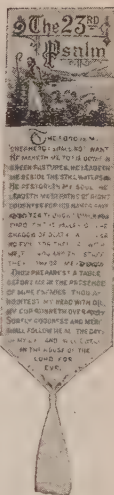 The 23RD
Psalm
THE LORD IS MY
SHEPHERD; I SHALL NOT WANT
HE MAKETH ME TO LIE DOWN IN
GREEN PASTURES, HE LEADETH
ME BESIDE THE STILL WATERS.
HE RESTORETH MY SOUL. HE
LEADETH ME IN PATHS OF RIGHT
EOUSNESS FOR HIS NAME'S SAKE
THOUGH I WALK
THE
SHADOW OF DEATH
NO EVIL FOR THOU
ME
THEY
THOU PREPAREST A TABLE
BEFORE ME IN THE PRESENCE
OF MINE ENEMIES THOU A-
NOINTEST MY HEAD WITH OIL,
MY CUP RUNNETH OVER
SURELY GOODNESS AND MERCY
SHALL FOLLOW ME ALL THE DAYS
OF MY LIFE AND
IN THE HOUSE OF THE
LORD FOR
EVER.